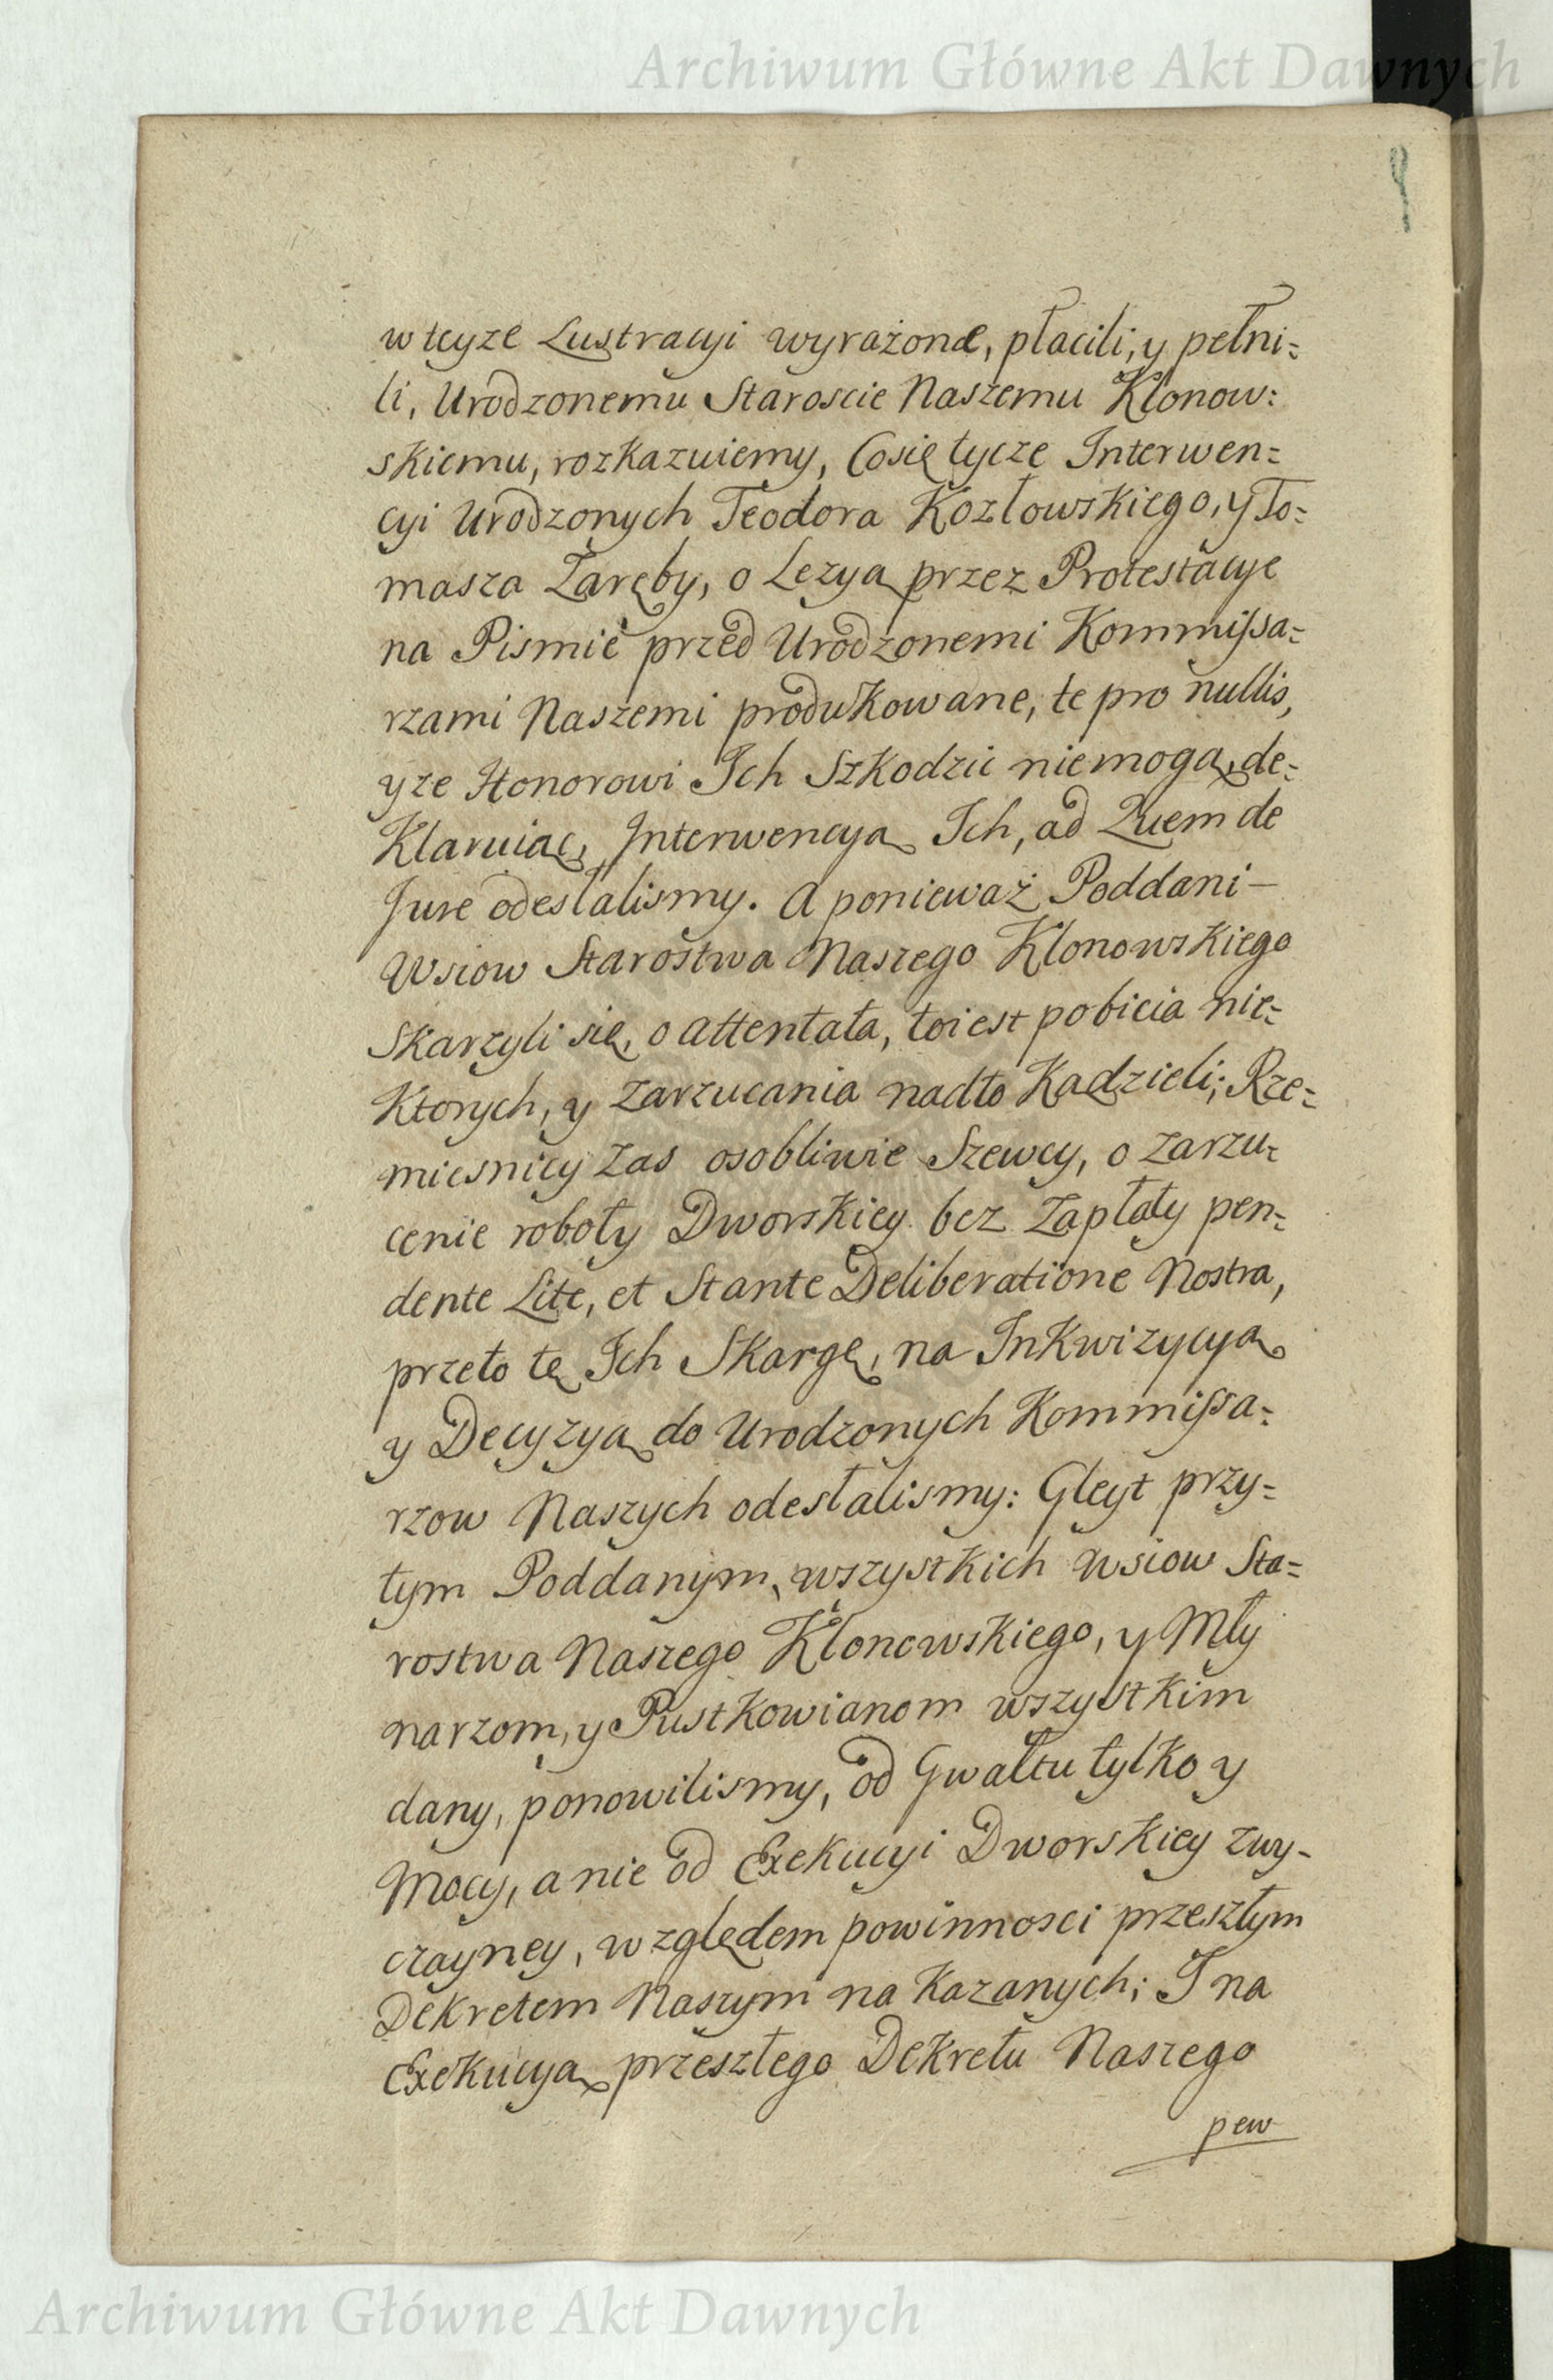 Archiwum Główne Akt Dawnych
9
w teyze Lustracyi wyrażone, płacili, y pełni=
li, Urodzonemu Staroscie Naszemu Klonow:
skiemu, rozkazuiemy, Cosię tycze Interwen=
cyi Urodzonych Teodora Kozłowskiego, y To=
masza Zaręby, o Lezyą przez Protestacye
na Pismie przed Urodzonemi Kommissa=
rzami Naszemi produkowane, te pro nullis,
y ze Honorowi Ich Szkodzic niemogą, de=
Klaruiąc, Interwencyą Ich, ad Quem de
Jure odesłalismy. A ponieważ Poddani –
Wsiow Starostwa Naszego Klonowskiego
Skarzyli się, o attentata, toiest pobicia nie=
Ktorych, y Zarzucania nadto Kądzieli; Rze=
miesnicy Zas osobliwie Szewcy, o Zarzu=
cenie roboty Dworskiey bez Zapłaty pen=
dente Lite, et Stante Deliberatione Nostra,
przeto tę Ich Skargę, na Inkwizycyą
y Decyzyą do Urodzonych Kommissa=
rzow Naszych odesłalismy: Gleyt przy=
tym Poddanym, wszystkich Wsiow Sta=
rostwa Naszego Klonowskiego, y Mły
narzom, y Pustkowianom wszystkim
dany, ponowilismy, od Gwałtu tylko y
Mocy, a nie od Exekucyi Dworskiey zwy-
czayney, względem powinnosci przeszłym
Dekretem Naszym na Kazanych; I na
Exekucyą przeszłego Dekretu Naszego
pew
Archiwum Główne Akt Dawnych